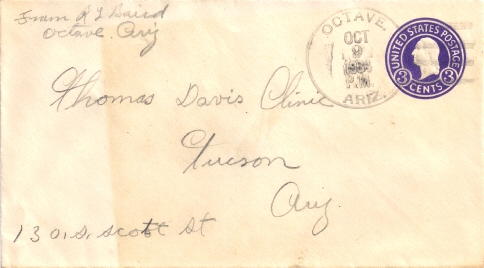 From R L Baird
Octave. Ariz
OCTAVE.
OCT
9
P.M.
ARIZ.
UNITED STATES POSTAGE
3 3
CENTS
Thomas Davis Clinic
Tucson
Ariz.
130. S. Scott St